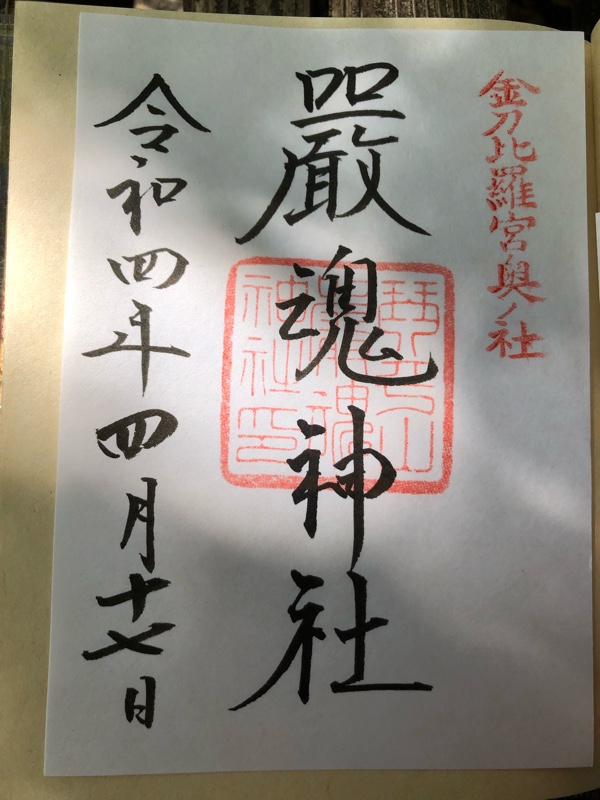 金刀比羅宮奥ノ社
嚴魂神社
令和四年四月十七日